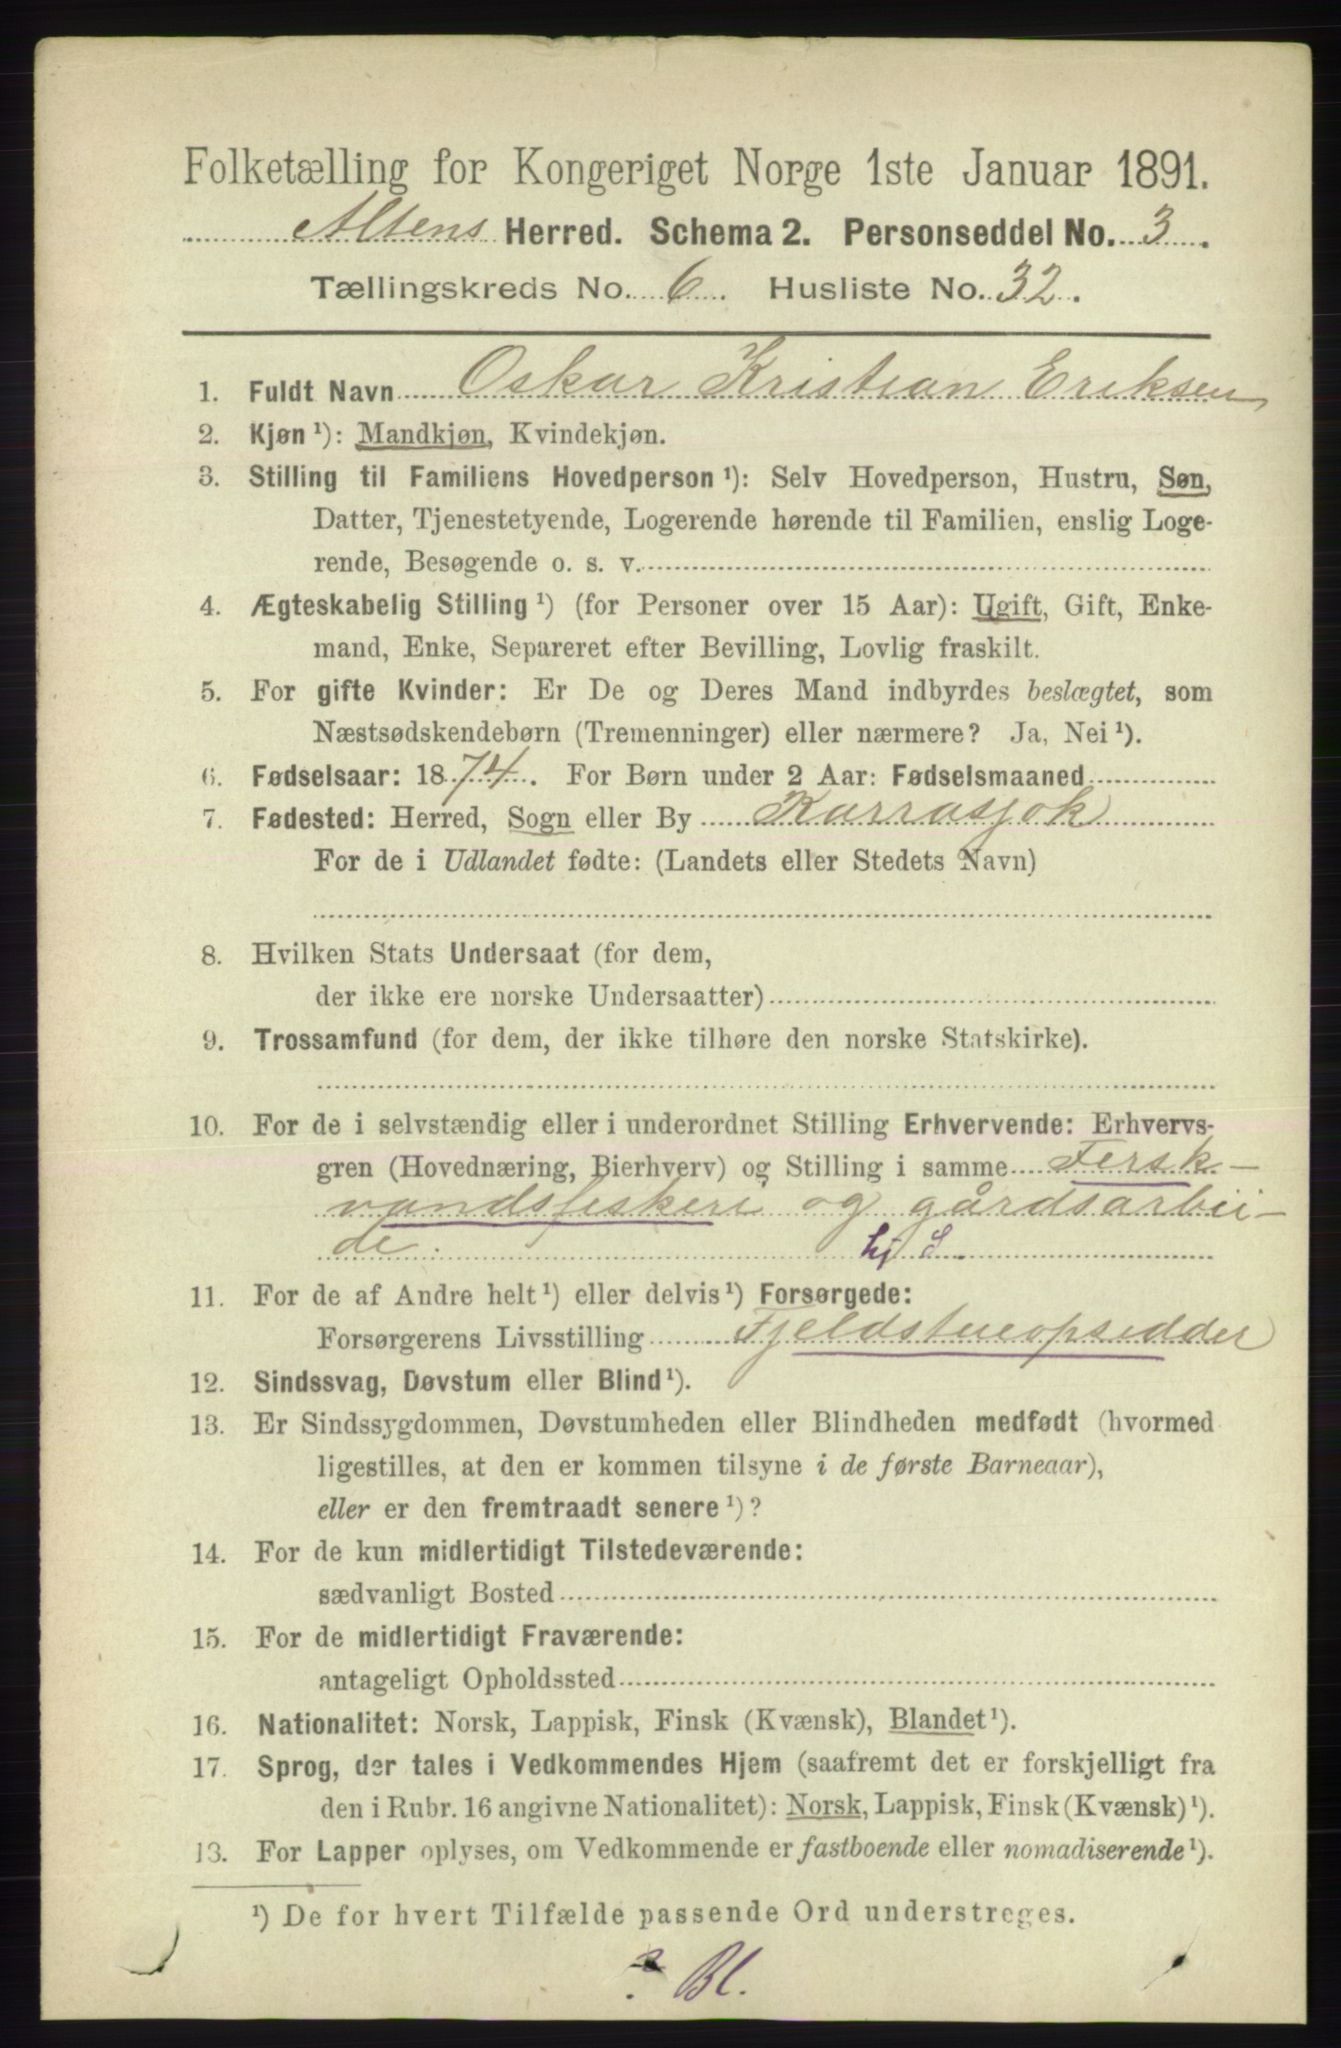 Folketælling for Kongeriget Norge 1ste Januar 1891.
Altens Herred. Schema 2. Personseddel No. 3.
Tællingskreds No. 6. Husliste No. 32.
1. Fuldt Navn Oskar Kristian Eriksen
2. Kjøn ¹): Mandkjøn, Kvindekjøn.
3. Stilling til Familiens Hovedperson ¹): Selv Hovedperson, Hustru, Søn,
Datter, Tjenestetyende, Logerende hørende til Familien, enslig Loge-
rende, Besøgende o. s. v.
4. Ægteskabelig Stilling ¹) (for Personer over 15 Aar): Ugift, Gift, Enke-
mand, Enke, Separeret efter Bevilling, Lovlig fraskilt.
5. For gifte Kvinder: Er De og Deres Mand indbyrdes beslægtet, som
Næstsødskendebørn (Tremenninger) eller nærmere? Ja, Nei ¹).
6. Fødselsaar: 1874. For Børn under 2 Aar: Fødselsmaaned
7. Fødested: Herred, Sogn eller By Karrasjok
For de i Udlandet fødte: (Landets eller Stedets Navn)
8. Hvilken Stats Undersaat (for dem,
der ikke ere norske Undersaatter)
9. Trossamfund (for dem, der ikke tilhøre den norske Statskirke).
10. For de i selvstændig eller i underordnet Stilling Erhvervende: Erhvervs-
gren (Hovednæring, Bierhverv) og Stilling i samme Fersk-
vandsfiskeri og gårdsarbei-
de. hj S.
11. For de af Andre helt ¹) eller delvis ¹) Forsørgede:
Forsørgerens Livsstilling Fjeldstueopsidder
12. Sindssvag, Døvstum eller Blind ¹).
13. Er Sindssygdommen, Døvstumheden eller Blindheden medfødt (hvormed
ligestilles, at den er kommen tilsyne i de første Barneaar),
eller er den fremtraadt senere ¹)?
14. For de kun midlertidigt Tilstedeværende:
sædvanligt Bosted
15. For de midlertidigt Fraværende:
antageligt Opholdssted
16. Nationalitet: Norsk, Lappisk, Finsk (Kvænsk), Blandet ¹).
17. Sprog, der tales i Vedkommendes Hjem (saafremt det er forskjelligt fra
den i Rubr. 16 angivne Nationalitet): Norsk, Lappisk, Finsk (Kvænsk) ¹).
13. For Lapper oplyses, om Vedkommende er fastboende eller nomadiserende ¹).
¹) De for hvert Tilfælde passende Ord understreges.
Bl.